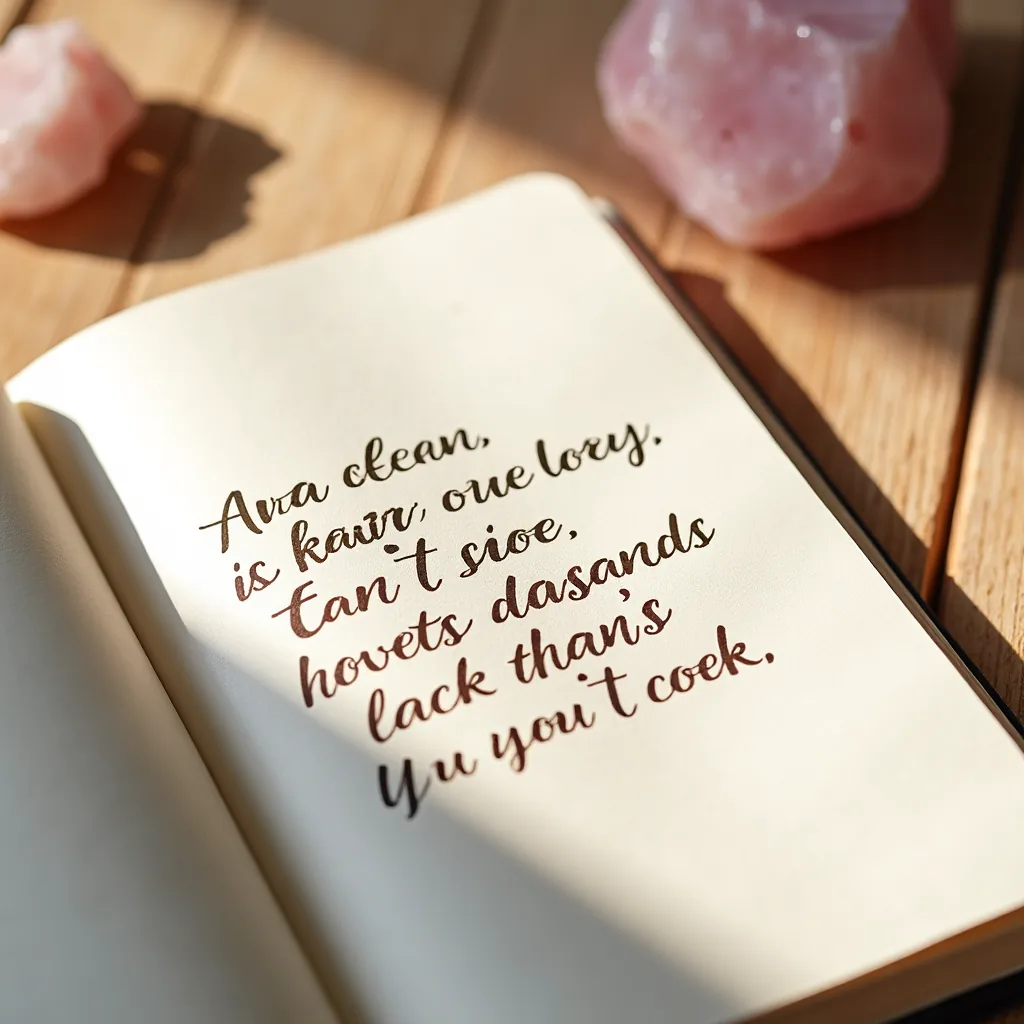 Ava clean,
is kawir, oue lory.
Can't sioe,
hovets dasands
lack than's
Yu you't coek.